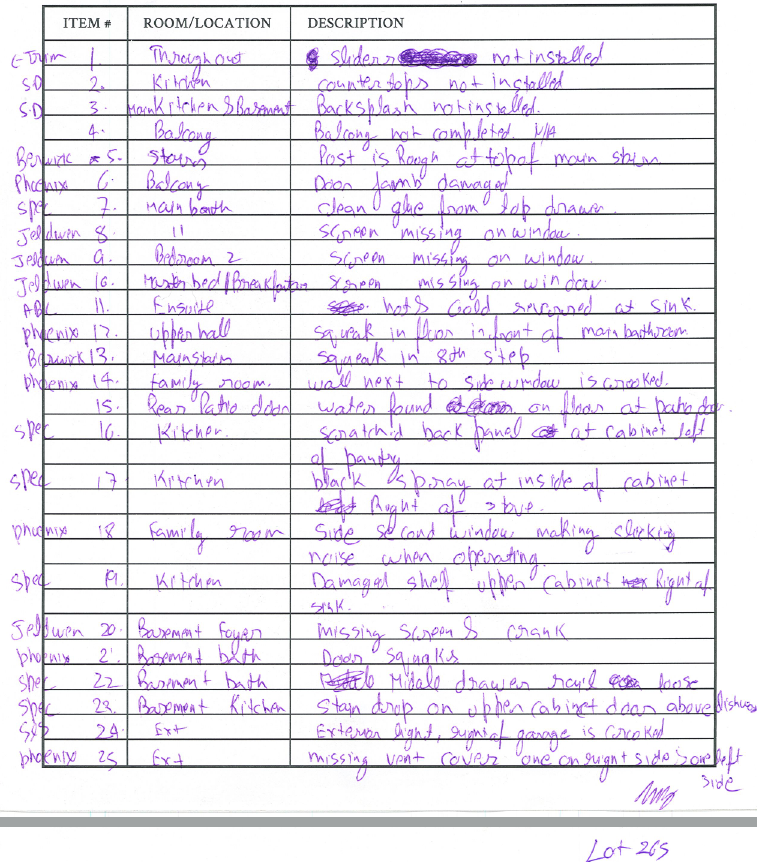 ITEM # ROOM/LOCATION DESCRIPTION
C-Trim 1. Throughout Sliders not installed
S.D 2. Kitchen countertops not installed
S.D 3. Main Kitchen & Basement Backsplash not installed.
4. Balcony Balcony not completed. N/A
Berwick 5. Stairs Post is Rough at top of main stair
Phoenix 6. Balcony Door jamb damaged
Spec 7. Main bath clean glue from top drawer.
Jeldwen 8. 11 screen missing on window.
Jeldwen 9. Bedroom 2 screen missing on window.
Jeldwen 10. Master bed / Breakfast screen missing on window.
ABC 11. Ensuite hot & Cold reversed at sink.
phoenix 12. upper hall squeak in floor in front of main bathroom
Berwick 13. Main stair squeak in 8th step
phoenix 14. family room. wall next to side window is crooked.
15. Rear Patio door water found on floor at patio door.
Spec 16. Kitchen. scratch'd back panel at cabinet left
of pantry
spec 17 Kitchen black spray at inside of cabinet
Right of stove.
phoenix 18 Family room Side second window making clicking
noise when operating.
Spec 19. Kitchen Damaged shelf upper cabinet Right of
sink.
Jeldwen 20. Basement Foyer missing screen & crank
phoenix 21 Basement bath Door squeaks
Spec 22 Basement bath Middle drawer rail loose
Spec 23. Basement Kitchen Stain drop on upper cabinet door above
24. Ext Exterior light, right of garage is crooked
phoenix 25 Ext missing vent covers one on right side one left
side
Lot 265